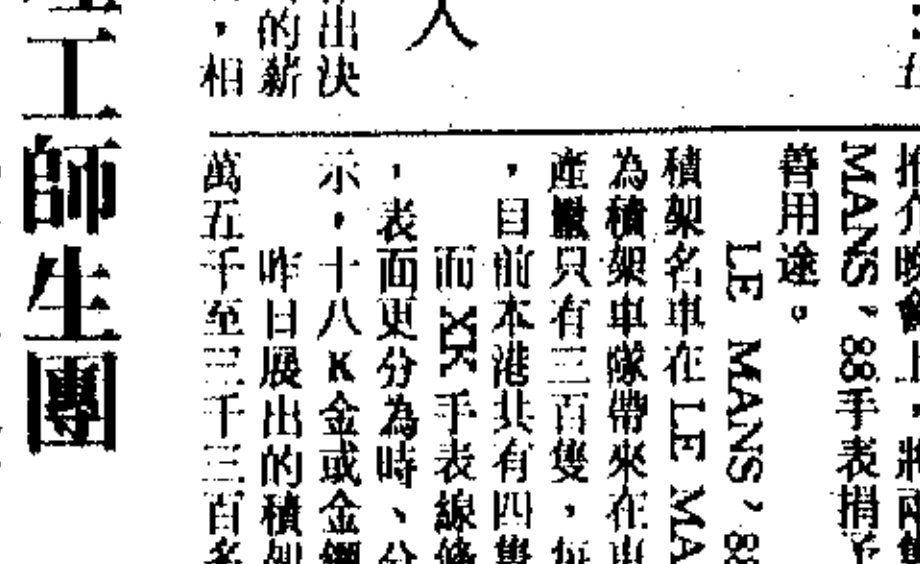 推介晚會上，將兩隻
MANS' 88手表捐予
善用途。
LE MANS' 88
積架名車在LE MA
為積架車隊帶來在車
產數只有三百隻，每
，目前本港共有四隻
而XK手表線條
，表面更分為時、分
示，十八K金或金鋼
昨日展出的積架
萬五千至三千三百多
人
出決
的薪
，相
工師生團